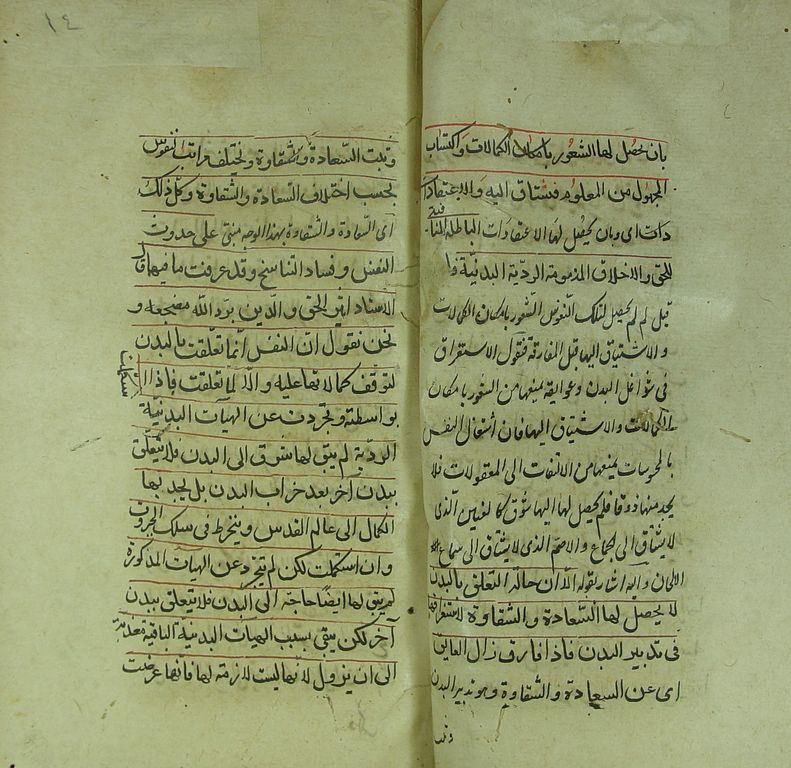 بان يحصل لها الشعور بامكان الكمالات واكتساب
المجهول من المعلوم فتشتاق اليه والاعتقادا
دات اى وبان يحصل لها الاعتقادات الباطلة المنا
فية
للحق والاخلاق المذمومة الردية البدنية فا
قيل لم لم يحصل لتلك النفوس الشعور بامكان الكمالات
والاشتياق اليها قبل المفارقة فنقول الاستغراق
فى شواغل البدن وعوايقه يمنعها من الشعور بامكان
الكمالات والاشتياق اليها فان اشتغال النفس
بالمحسوسات يمنعها من الالتفات الى المعقولات فلا
يجد منها ذوقا فلم يحصل لها اليها شوق كالعنين الذى
لا يشتاق الى الجماع والاصم الذى لا يشتاق الى سماع
الالحان واليه اشار بقوله الا ان حالة التعلق بالبدن
لا يحصل لها السعادة والشقاوة لاستغراقها
فى تدبير البدن فاذا فارق زال العايق
اى عن السعادة والشقاوة وهو تدبير البدن
وثبت
١٤
وثبت السعادة والشقاوة وتختلف مراتب النفوس
بحسب اختلاف السعادة والشقاوة وكل ذلك
اى السعادة والشقاوة بهذا الوجه مبنى على حدوث
النفس وفساد التناسخ وقد عرفت ما فيهما قال
الاستاد اثير الحق والدين برد الله مضجعه و
نحن نقول ان النفس انما تعلقت بالبدن
لتوقف كمالاتها عليه والا لما تعلقت فاذا ا
ستكملت
بواسطته وتجردت عن الهيات البدنية
الردية لم يبق لها شوق الى البدن فلا يتعلق
ببدن آخر بعد خراب البدن بل يجد بها
الكمال الى عالم القدس وينخرط فى سلك الجبروت
وان استكملت لكن لم يتجرد عن الهيات المذكورة
لم يبق لها ايضا حاجة الى البدن فلا يتعلق ببدن
آخر لكن يبقى بسبب الهيات البدنية الباقية معذبة
الى ان يزول لانها ليست لازمة لها فانها عرضت